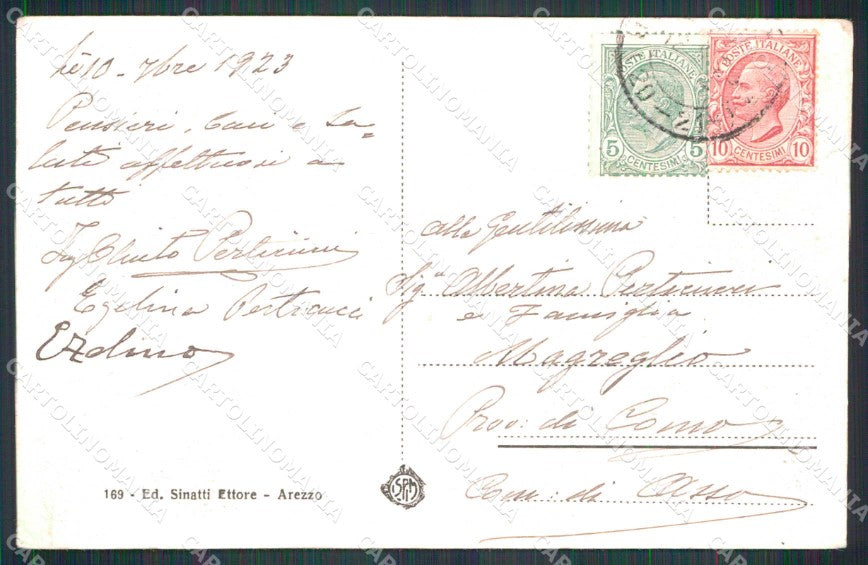 li 10 - 7bre 1923
Pensieri, baci e sa=
luti affettuosi a
tutti
Pertinini
Ezelina Pertinacci
Ezelino
POSTE ITALIANE
5 CENTESIMI 5
POSTE ITALIANE
10 CENTESIMI 10
alla Gentilissima
Sig.ª Albertina
e Famiglia
Magreglio
Prov: di Como
Com: di Asso
169 - Ed. Sinatti Ettore - Arezzo
CARTOLINOMANIA